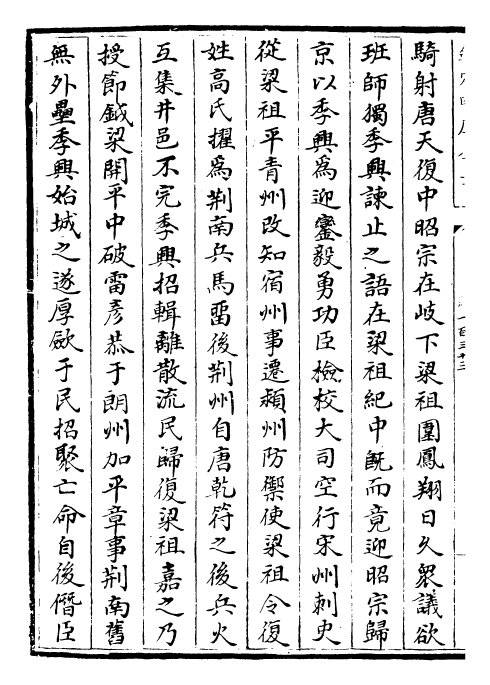 騎射唐天復中昭宗在岐下梁祖圍鳳翔日久衆議欲
班師獨季興諫止之語在梁祖紀中既而竟迎昭宗歸
京以季興為迎鑾毅勇功臣檢校大司空行宋州刺史
從梁祖平青州改知宿州事遷潁州防禦使梁祖令復
姓高氏擢為荆南兵馬留後荆州自唐乾符之後兵火
互集井邑不完季興招輯離散流民歸復梁祖嘉之乃
授節鉞梁開平中破雷彦恭于朗州加平章事荆南舊
無外壘季興始城之遂厚歛于民招聚亡命自後僭臣